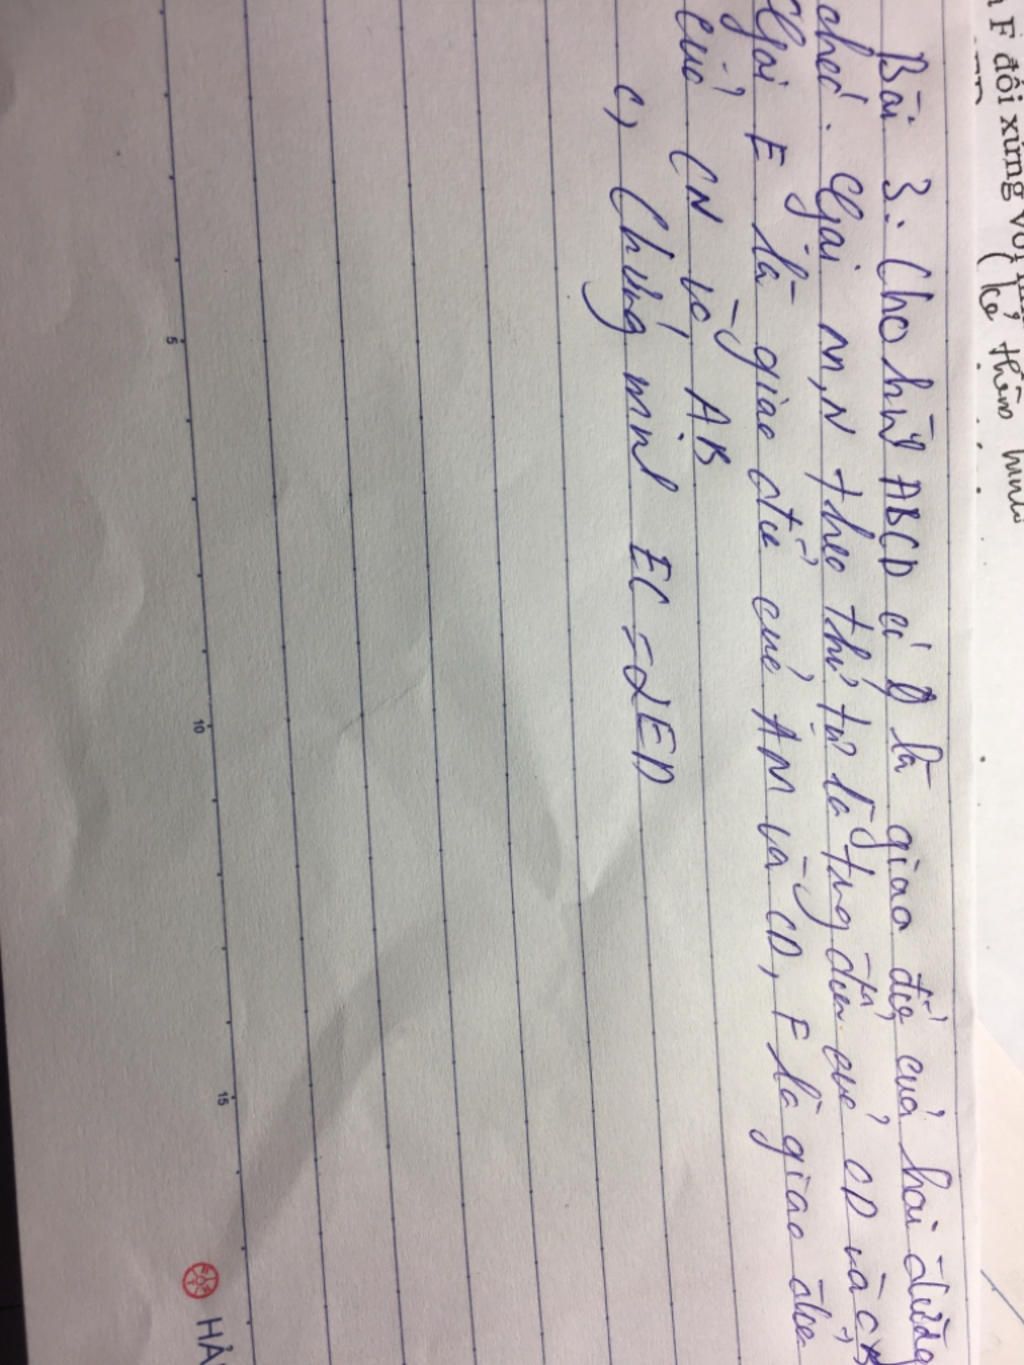 F đối xứng với
(kẻ thêm hình
Bài 3: Cho hình ABCD có O là giao điể của hai đường
chéo. Gọi M, N theo thứ tự là trung điểm của OD và OB
Gọi E là giao điể của AM và CD, F là giao điểm
của CN và AB
c) Chứng minh EC = 2ED
5
10
15
HẢ